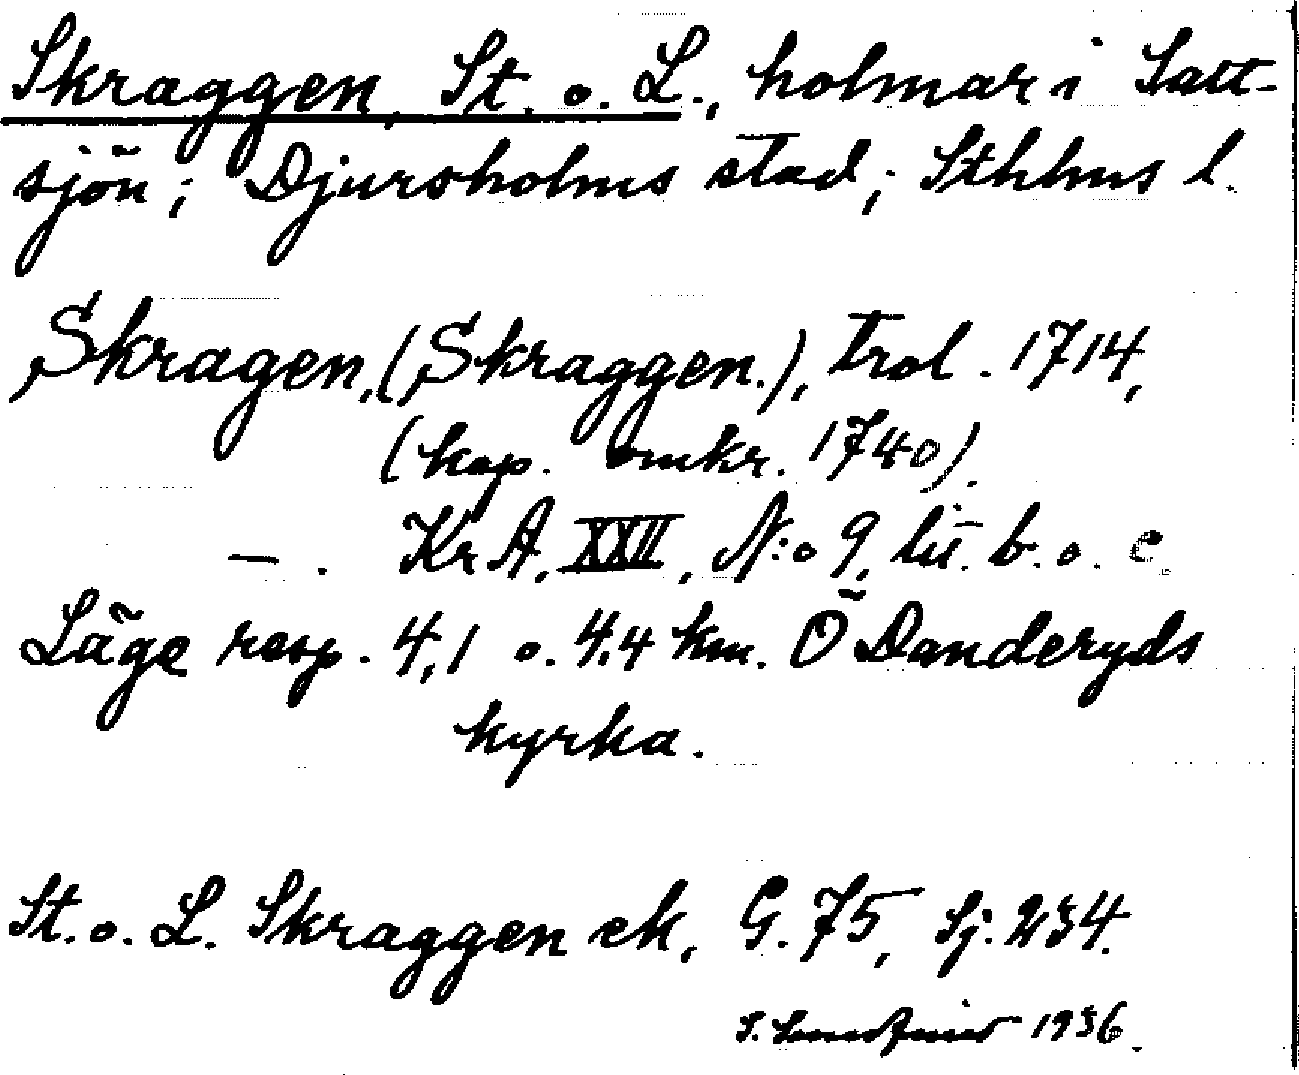 Skraggen, St. o. L., holmar i Salt-
sjön; Djursholms stad; Sthlms l.
Skragen, (Skraggen.), trol. 1714,
(kop. omkr. 1740).
— . KrA, XXII, N:o 9, lit. b. o. c.
Läge resp. 4,1 o. 4,4 km. Ö Danderyds
kyrka.
St. o. L. Skraggen ek, G. 75, Sj. 234.
S. 1936.